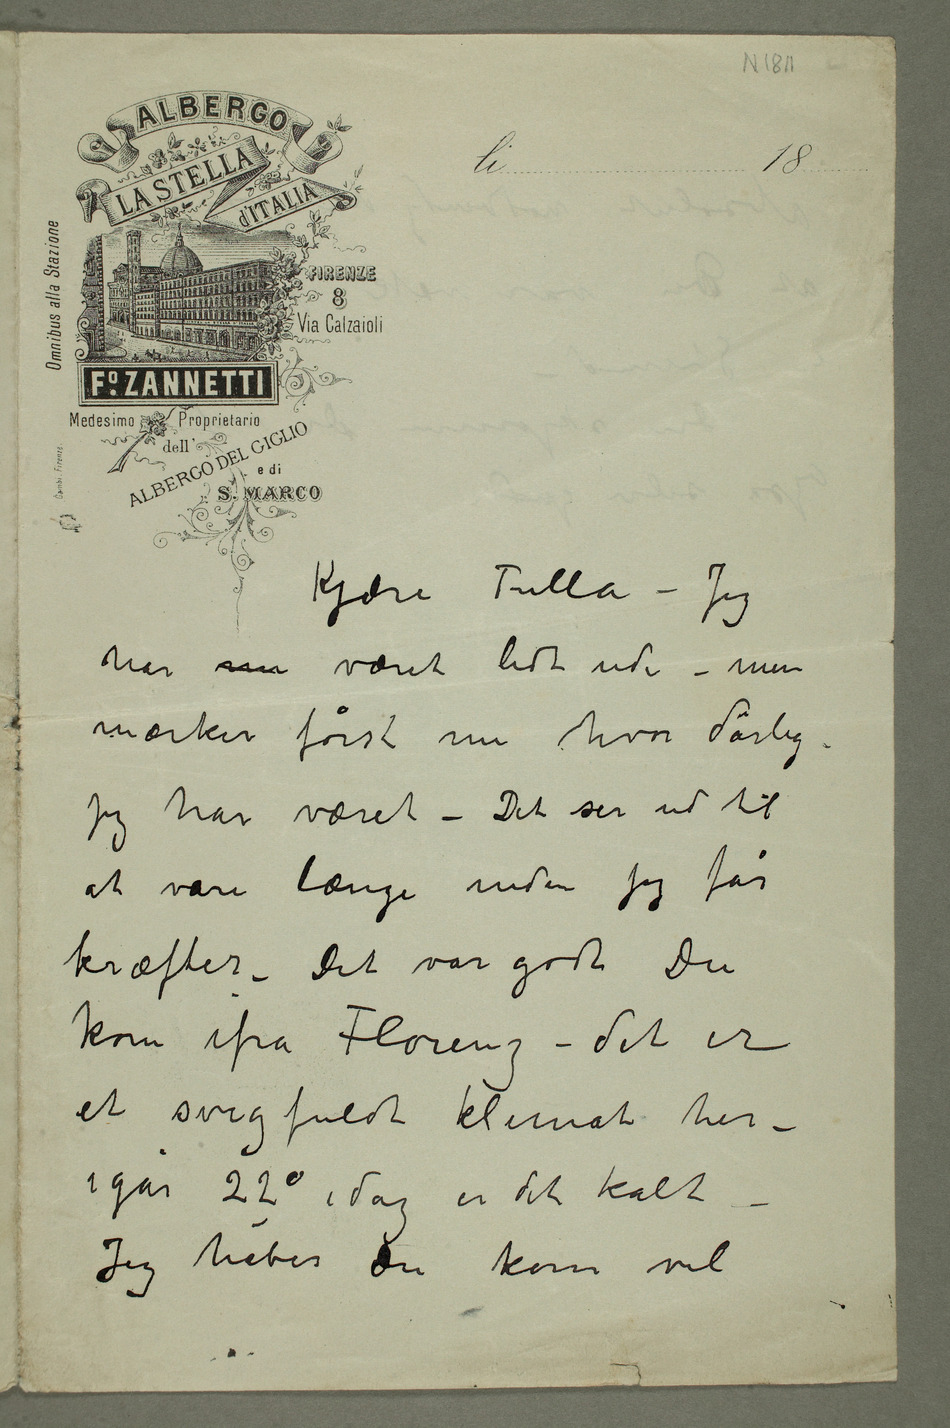 N 1811
ALBERGO
LA STELLA
d'ITALIA
Omnibus alla Stazione
FIRENZE
8
Via Calzaioli
Fo. ZANNETTI
Medesimo Proprietario
dell'
ALBERGO DEL GIGLIO
e di
S. MARCO
li 18
Kjære Tulla – Jeg
har nu været lidt ude – men
mærker først nu hvor dårlig
jeg har været – Det ser ud til
at være længe inden jeg får
kræfter – Det var godt Du
kom ifra Florenz – det er
et svigfuldt klimat her –
igår 22° idag er det kalt –
Jeg håber Du kom vel